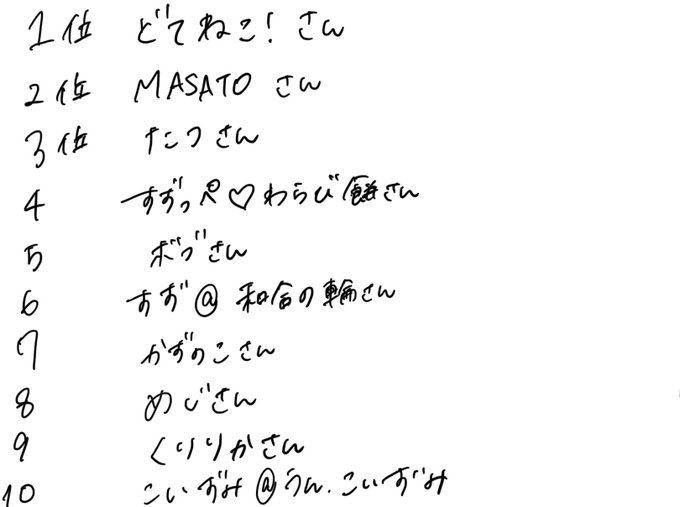 1位 どてねこ!さん
2位 MASATO さん
3位 たつさん
4 すずっぺ♡わらび餅さん
5 ボブさん
6 すず@和合の輪さん
7 かずのこさん
8 めじさん
9 くりりかさん
10 こいずみ@うん.こいずみ